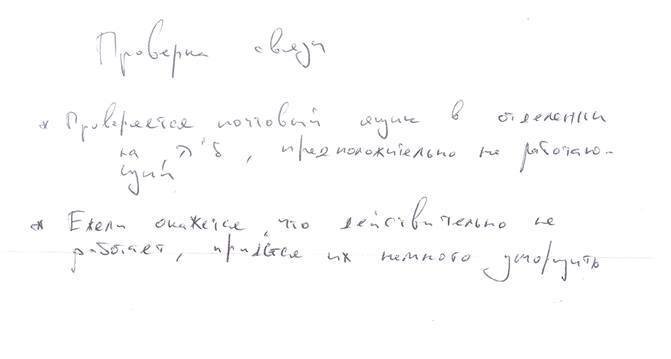 Проверка связи
* Проверяется почтовый ящик в отделении
на , предположительно не работаю-
щий
* Ежели окажется, что действительно не
работает, придётся их немного